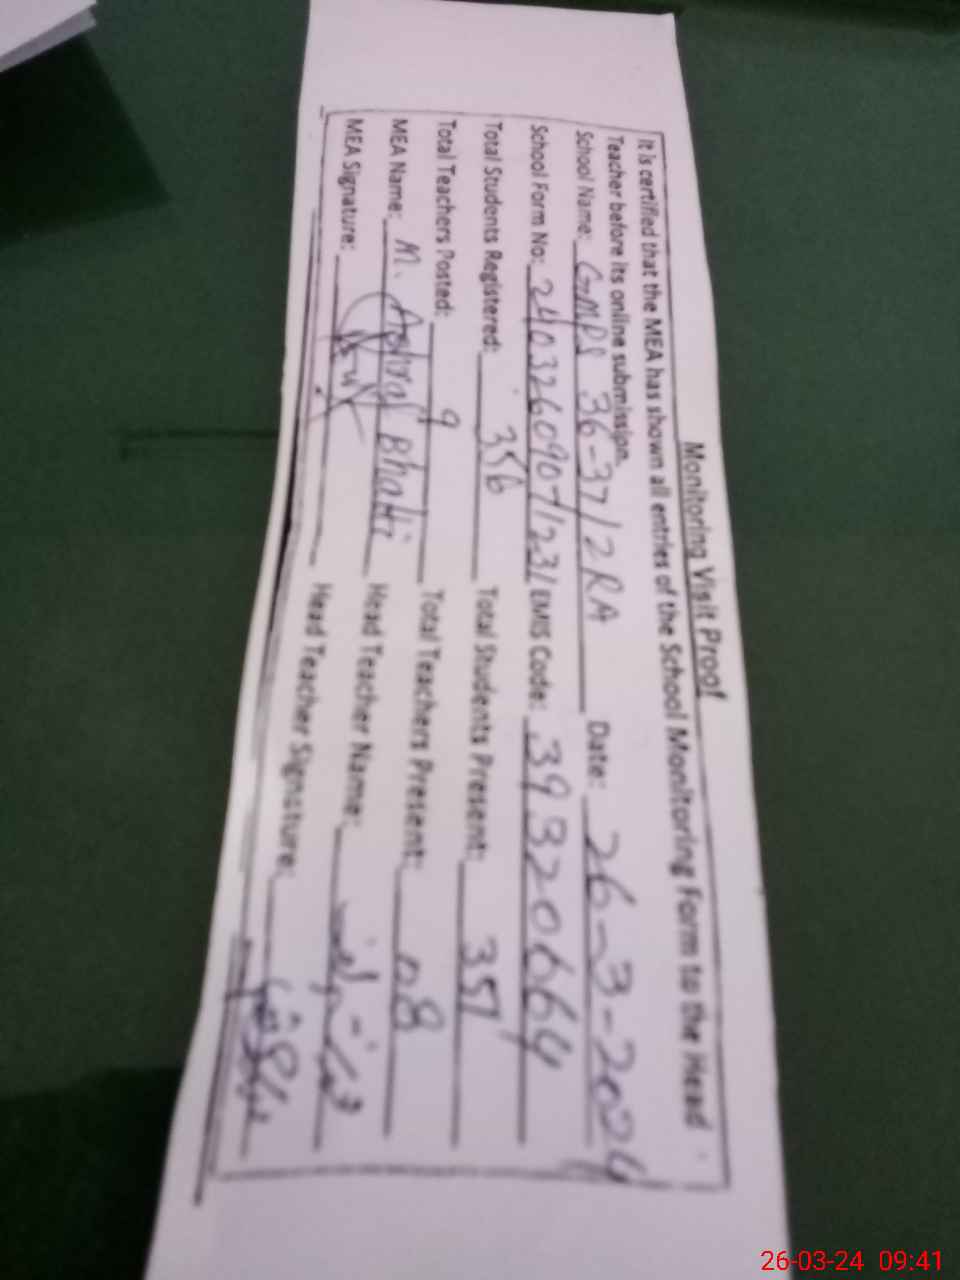 Monitoring Visit Proof
It is certified that the MEA has shown all entries of the School Monitoring Form to the Head
Teacher before its online submission.
School Name: GMPS 36-37/2RA Date: 26-3-2024
School Form No: 24032609071231 EMIS Code: 39320664
Total Students Registered: 356 Total Students Present: 351
Total Teachers Posted: 9 Total Teachers Present: 08
MEA Name: M. Ashraf Bhatti Head Teacher Name:
MEA Signature: Head Teacher Signature:
26-03-24 09:41